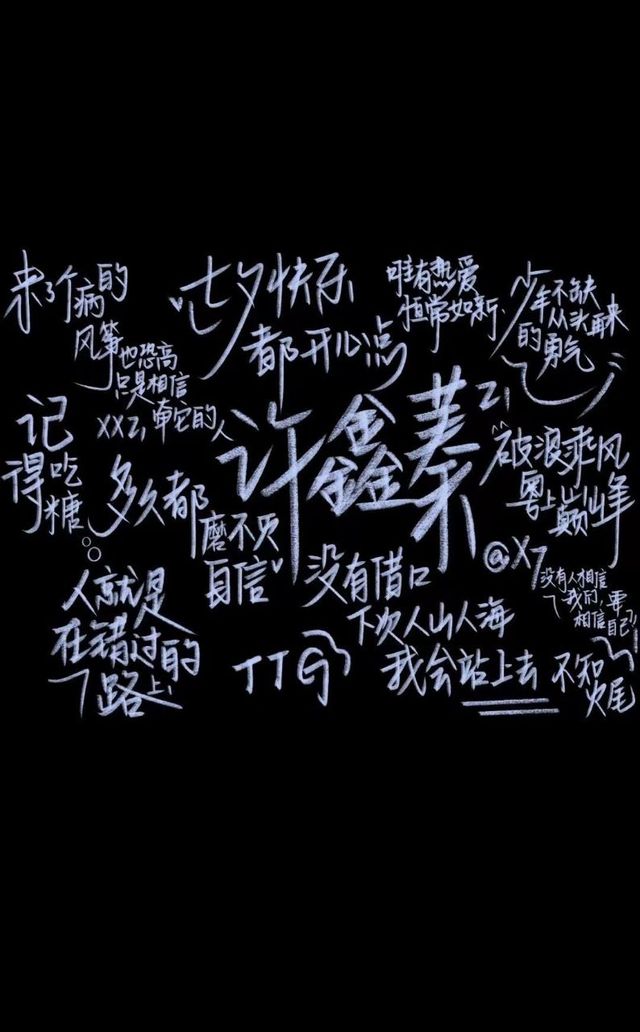 来了个病的
风筝
也恐高
只是相信
牵它的人
七夕快乐
都开心点
唯有热爱
恒常如新
少年不缺
从头再来
的勇气
记
得吃
糖
XXZi
许鑫蓁
破浪乘风
粤上巅峰
多久都
自信
没有借口
@X7
没有人相信
我们要
相信自己
人就是
在错过的
路上
TTG
下次人山人海
我会站上去
不知
火尾